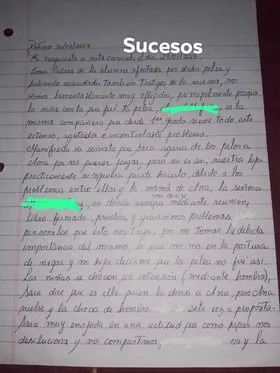 Sucesos
En respuesta a nota enviada el día
Como Padres de la alumna afectada por dicha pelea y
habiendo recaudado también Testigos de la misma, nos
vemos lamentablemente muy afligidos, principalmente porque
la niña con la que fue la pelea, es la
misma compañera que desde 1er grado viene todo este
extenso, agotado e incontrolable problema.
señorita que Sara agarra de los pelos a
Ana por no querer jugar, pero no es así, nuestra hija
prácticamente ni siquiera puede hacerlo, debido a los
problemas entre ellas y la mamá de Ana, la señora
en donde mediante reunión,
libro firmado, pruebas, y problemas
personales que esto nos trajo, por no tomar la debida
importancia del mismo, lo que me veo en la postura
de negar y mi hija decirme que la pelea no fue así.
Las niñas se chocan sin intensión (mediante hombro),
Sara dice que es ella quien la choca a Ana, pero Ana
vuelve y la choca de hombro esta vez a propósito.
Sara muy enojada en una actitud que como papás nos
desilusiona y no compartimos, va y la